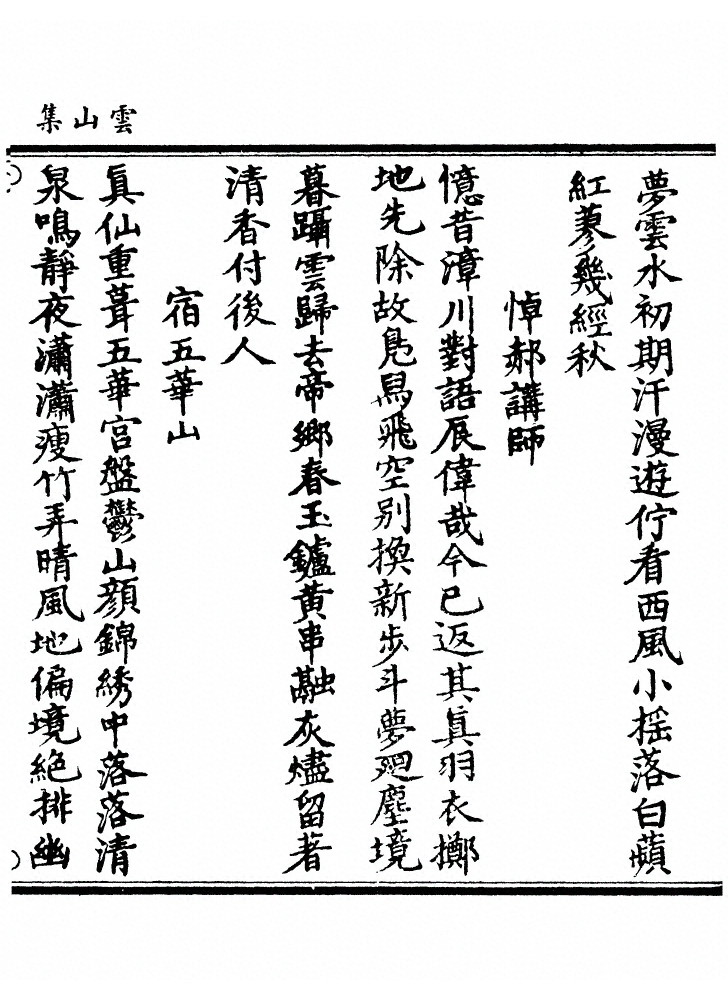 雲山集
夢雲水初期汗漫遊佇看西風小揺落白蘋
紅蓼幾經秋
悼郝講師
憶昔漳川對語辰偉哉今已返其眞羽衣擲
地先除故舃飛空别換新步斗夢廻塵境
暮躡雲歸去帝鄉春玉鑪黄串融灰燼留著
清香付後人
宿五華山
眞仙重葺五華宫盤鬱山顔錦綉中落落清
泉鳴靜夜瀟瀟瘦竹弄晴風地偏境絶排幽